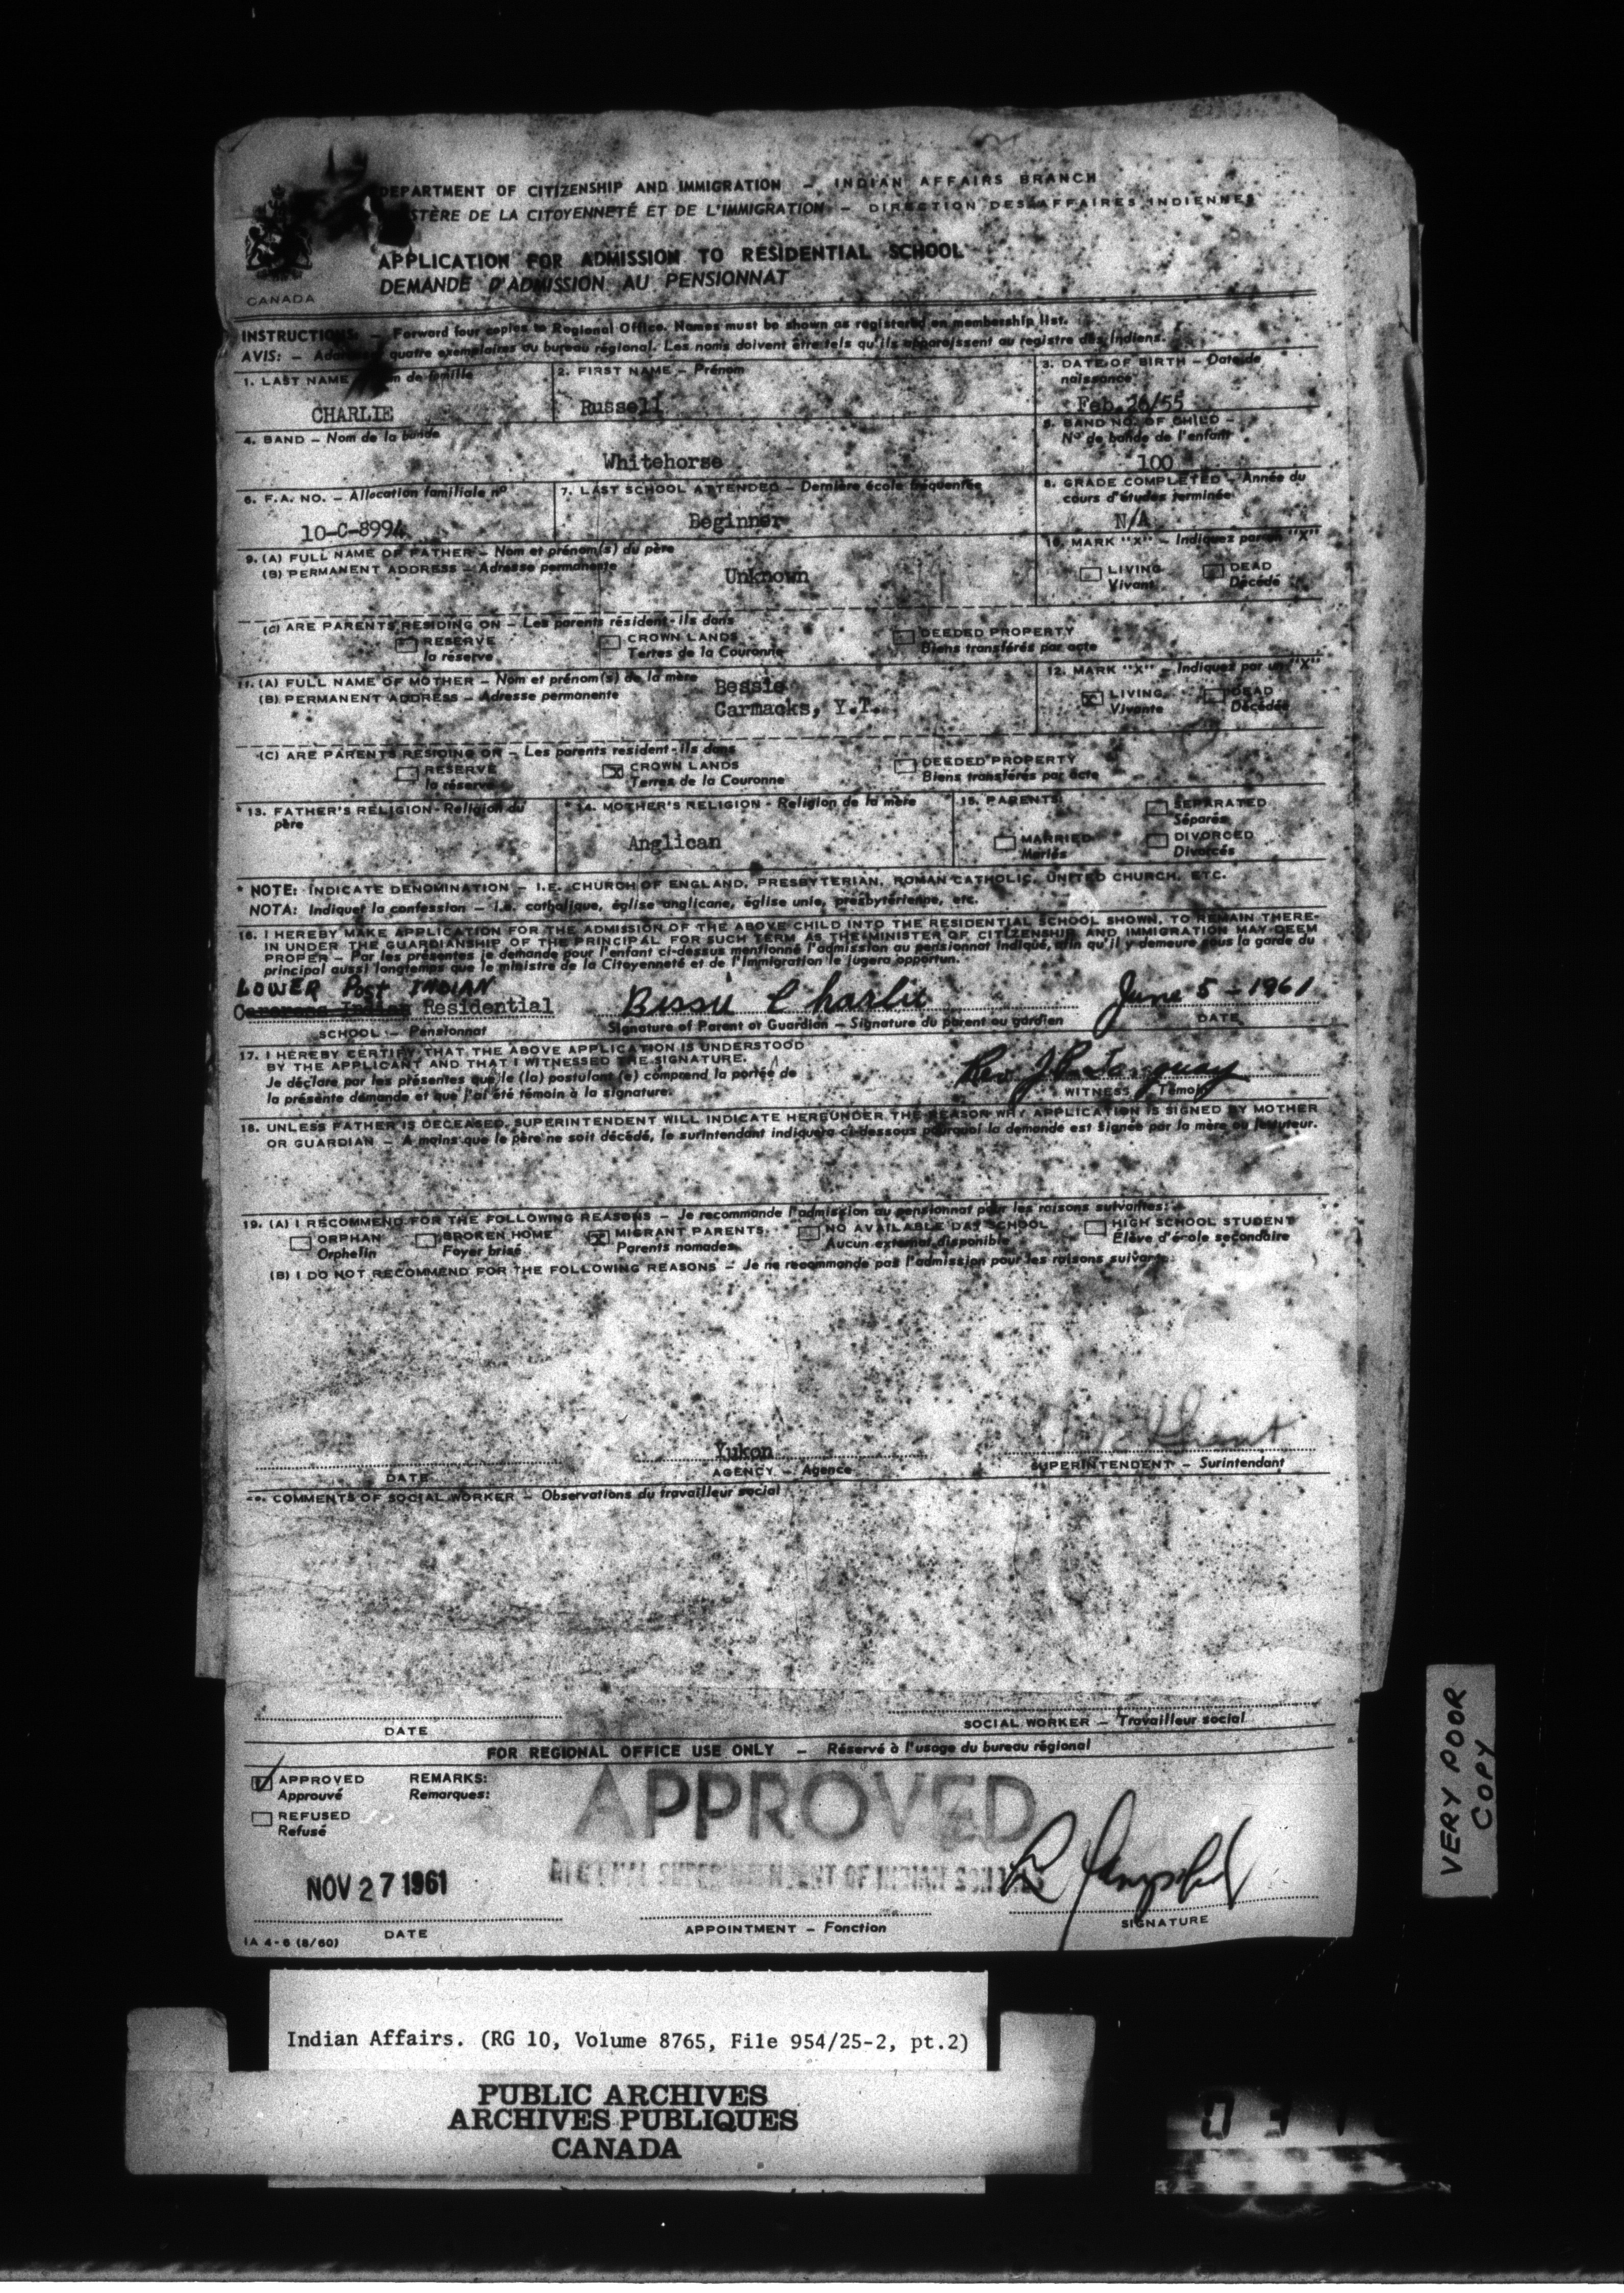 DEPARTMENT OF CITIZENSHIP AND IMMIGRATION – INDIAN AFFAIRS BRANCH
STÈRE DE LA CITOYENNETÉ ET DE L'IMMIGRATION – DIRECTION DES AFFAIRES INDIENNES
APPLICATION FOR ADMISSION TO RESIDENTIAL SCHOOL
DEMANDE D'ADMISSION AU PENSIONNAT
CANADA
INSTRUCTIONS: – Forward four copies to Regional Office. Names must be shown as registered on membership list.
AVIS: – quatre exemplaires au bureau régional. Les noms doivent être tels qu'ils apparaissent au registre des Indiens.
1. LAST NAME de famille
CHARLIE
2. FIRST NAME – Prénom
Russell
3. DATE OF BIRTH – Date de naissance
Feb. 26/55
4. BAND – Nom de la bande
Whitehorse
5. BAND NO. OF CHILD –
Nº de bande de l'enfant
100
6. F.A. NO. – Allocation familiale nº
10-C-8994
7. LAST SCHOOL ATTENDED – Dernière école fréquentée
Beginner
8. GRADE COMPLETED – Année du
cours d'études terminée
N/A
9. (A) FULL NAME OF FATHER – Nom et prénom(s) du père
(B) PERMANENT ADDRESS – Adresse permanente
Unknown
10. MARK "X" – Indiquez par un "X"
LIVING DEAD
Vivant Décédé
(C) ARE PARENTS RESIDING ON – Les parents résident-ils dans
RESERVE CROWN LANDS DEEDED PROPERTY
la réserve Terres de la Couronne Biens transférés par acte
11. (A) FULL NAME OF MOTHER – Nom et prénom(s) de la mère
(B) PERMANENT ADDRESS – Adresse permanente
Bessie
Carmacks, Y.T.
12. MARK "X" – Indiquez par un "X"
X LIVING DEAD
Vivante Décédée
(C) ARE PARENTS RESIDING ON – Les parents resident-ils dans
RESERVE X CROWN LANDS DEEDED PROPERTY
la réserve Terres de la Couronne Biens transférés par acte
* 13. FATHER'S RELIGION - Religion du
père
* 14. MOTHER'S RELIGION - Religion de la mère
Anglican
15. PARENTS:
SEPARATED
Séparés
MARRIED DIVORCED
Mariés Divorcés
* NOTE: INDICATE DENOMINATION – I.E. CHURCH OF ENGLAND, PRESBYTERIAN, ROMAN CATHOLIC, UNITED CHURCH, ETC.
NOTA: Indiquer la confession – i.e. catholique, église anglicane, église unie, presbytérienne, etc.
16. I HEREBY MAKE APPLICATION FOR THE ADMISSION OF THE ABOVE CHILD INTO THE RESIDENTIAL SCHOOL SHOWN, TO REMAIN THERE-
IN UNDER THE GUARDIANSHIP OF THE PRINCIPAL FOR SUCH TERM AS THE MINISTER OF CITIZENSHIP AND IMMIGRATION MAY DEEM
PROPER – Par les présentes je demande pour l'enfant ci-dessus mentionné l'admission au pensionnat indiqué, afin qu'il y demeure sous la garde du
principal aussi longtemps que le ministre de la Citoyenneté et de l'Immigration le jugera opportun.
LOWER Post INDIAN
Carcross Indian Residential
Bessie Charlie
June 5 – 1961
SCHOOL – Pensionnat
Signature of Parent or Guardian – Signature du parent ou gardien
DATE
17. I HEREBY CERTIFY THAT THE ABOVE APPLICATION IS UNDERSTOOD
BY THE APPLICANT AND THAT I WITNESSED THE SIGNATURE.
Je déclare par les présentes que le (la) postulant (e) comprend la portée de
la présente demande et que j'ai été témoin à la signature.
Rev. J.P. Tanguay
WITNESS Témoin
18. UNLESS FATHER IS DECEASED, SUPERINTENDENT WILL INDICATE HEREUNDER THE REASON WHY APPLICATION IS SIGNED BY MOTHER
OR GUARDIAN – A moins que le père ne soit décédé, le surintendant indiquera ci-dessous pourquoi la demande est signée par la mère ou le tuteur.
19. (A) I RECOMMEND FOR THE FOLLOWING REASONS – Je recommande l'admission au pensionnat pour les raisons suivantes:
ORPHAN BROKEN HOME X MIGRANT PARENTS NO AVAILABLE DAY SCHOOL HIGH SCHOOL STUDENT
Orphelin Foyer brisé Parents nomades Aucun externat disponible Élève d'école secondaire
(B) I DO NOT RECOMMEND FOR THE FOLLOWING REASONS – Je ne recommande pas l'admission pour les raisons suivantes
Yukon
DATE
AGENCY – Agence
SUPERINTENDENT – Surintendant
COMMENTS OF SOCIAL WORKER – Observations du travailleur social
DATE
SOCIAL WORKER – Travailleur social
FOR REGIONAL OFFICE USE ONLY – Réservé à l'usage du bureau régional
APPROVED
Approuvé
REMARKS:
Remarques:
REFUSED
Refusé
APPROVED
NOV 27 1961
DATE
APPOINTMENT – Fonction
SIGNATURE
IA 4-6 (8/60)
VERY POOR
COPY
Indian Affairs. (RG 10, Volume 8765, File 954/25-2, pt.2)
PUBLIC ARCHIVES
ARCHIVES PUBLIQUES
CANADA